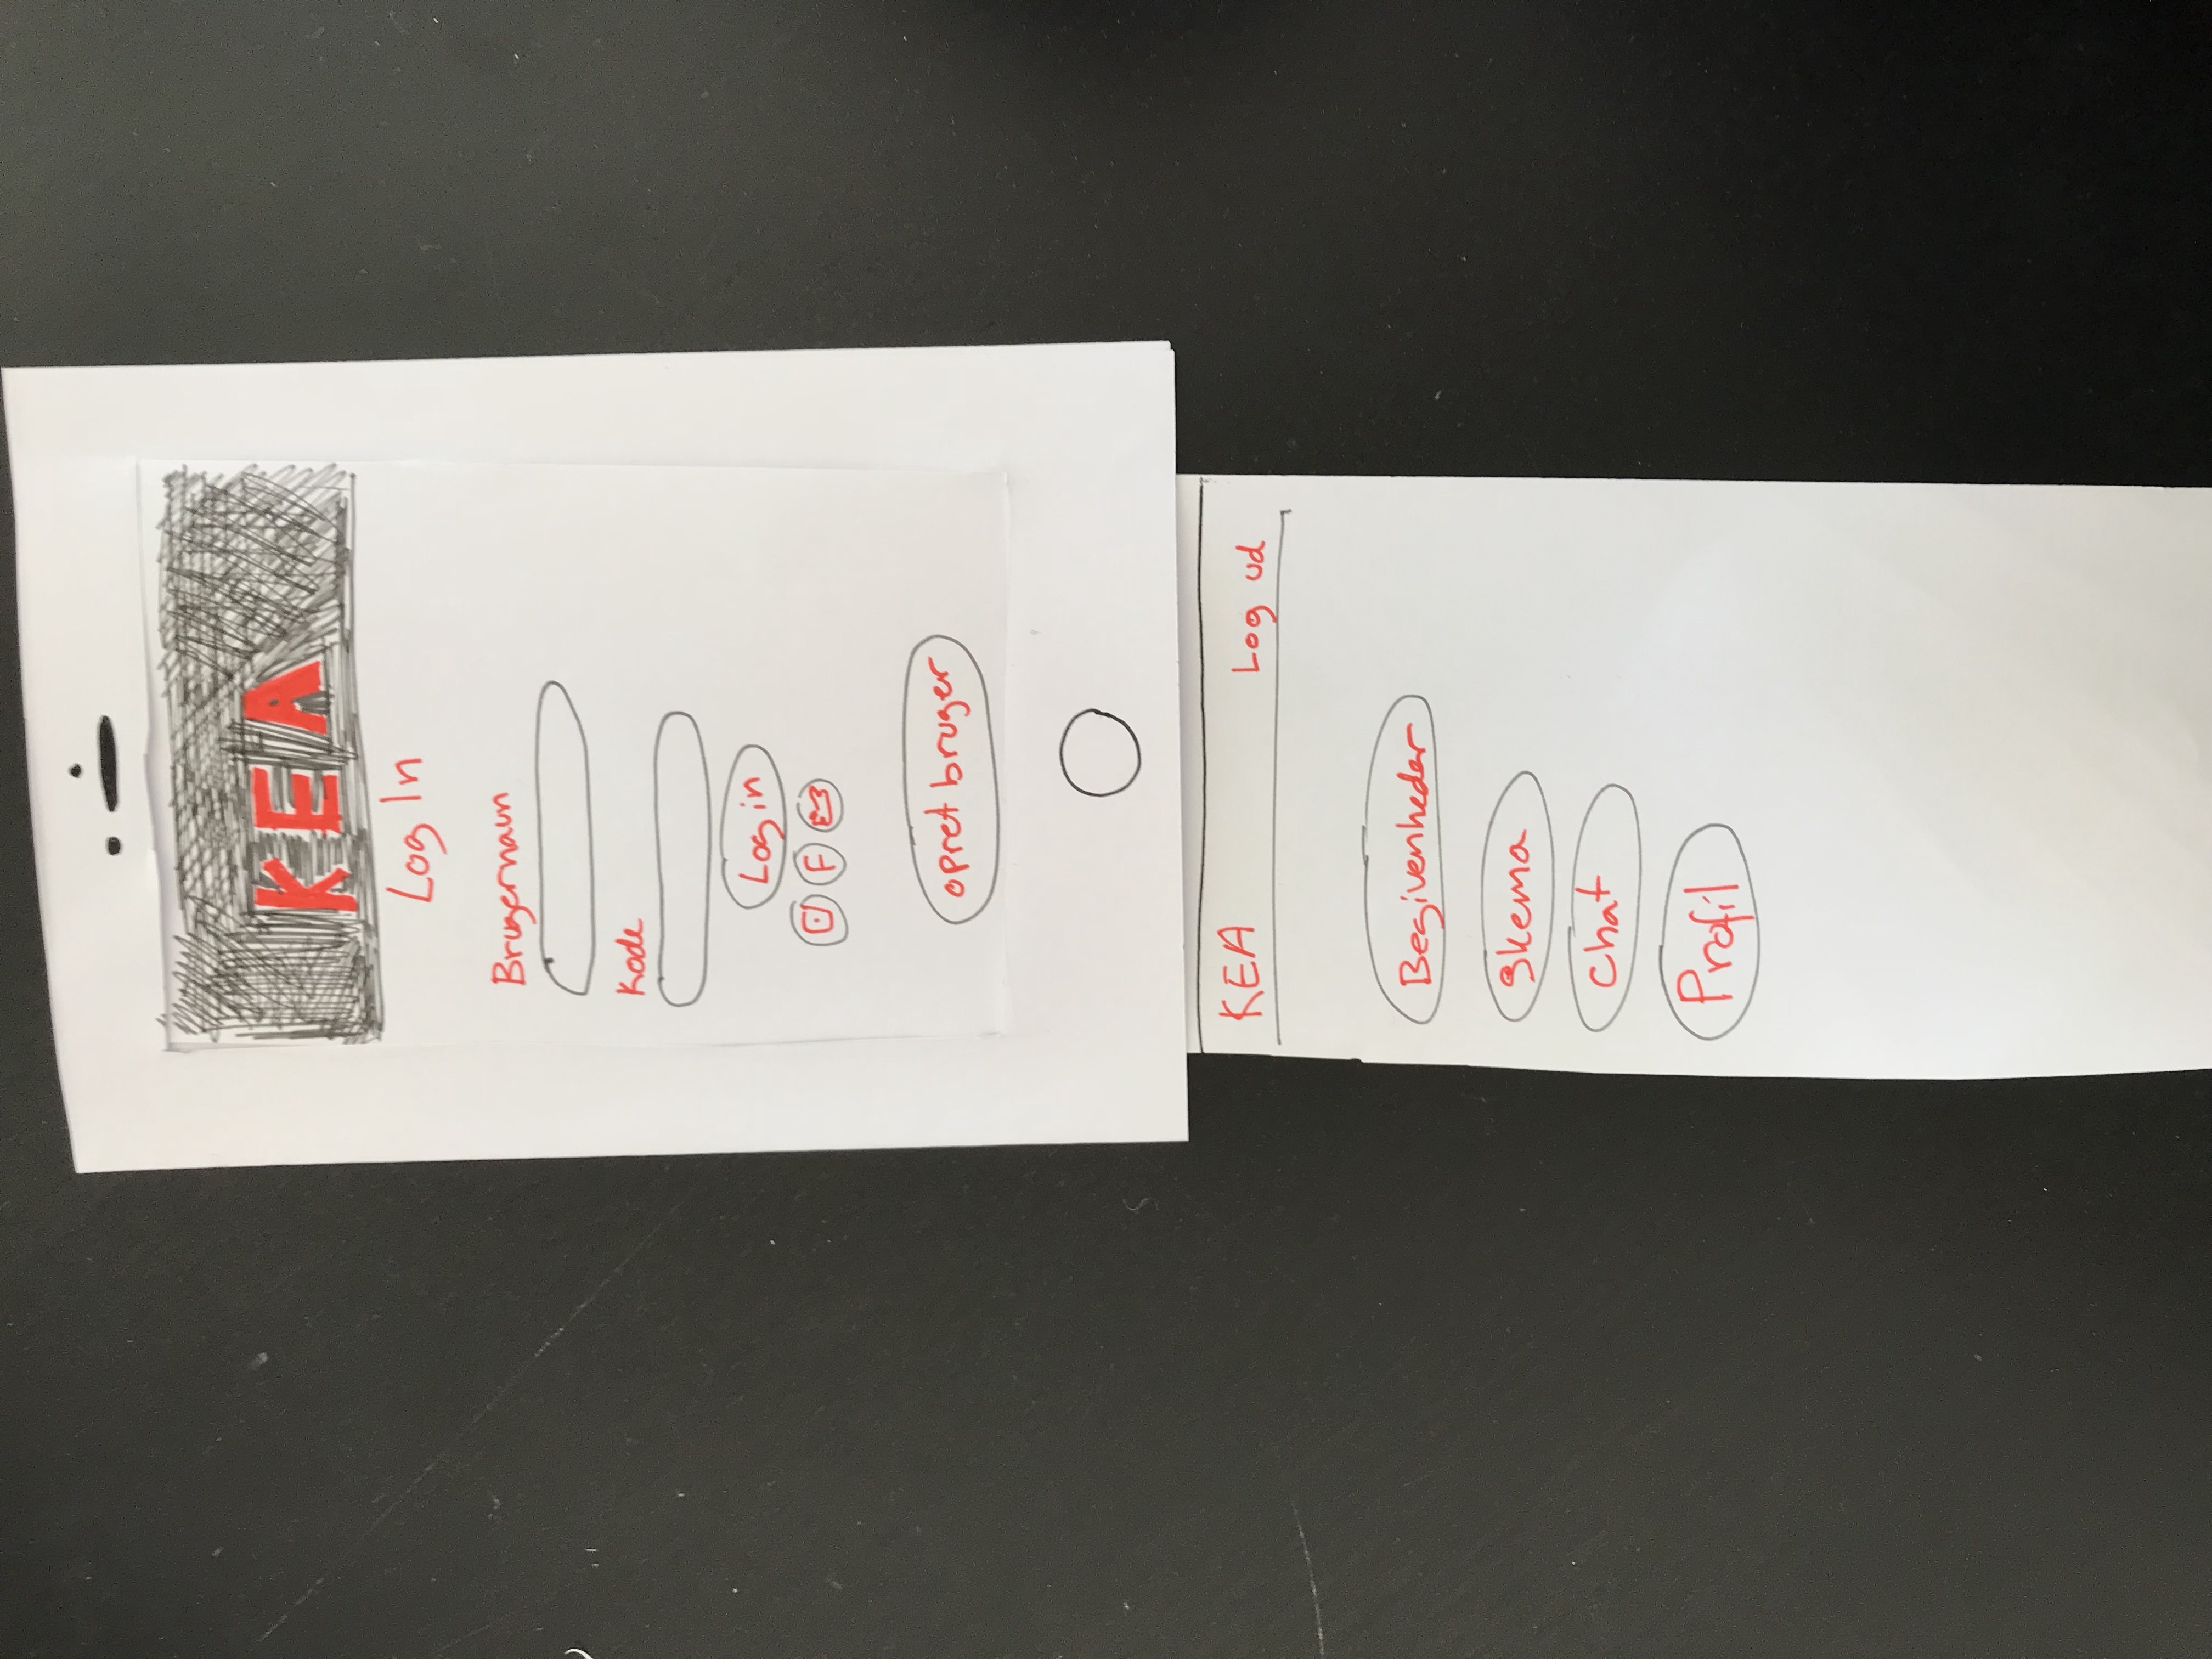 KEA
Log In
Brugernavn
Kode
Login
F
opret bruger
KEA Log ud
Begivenheder
Skema
Chat
Profil